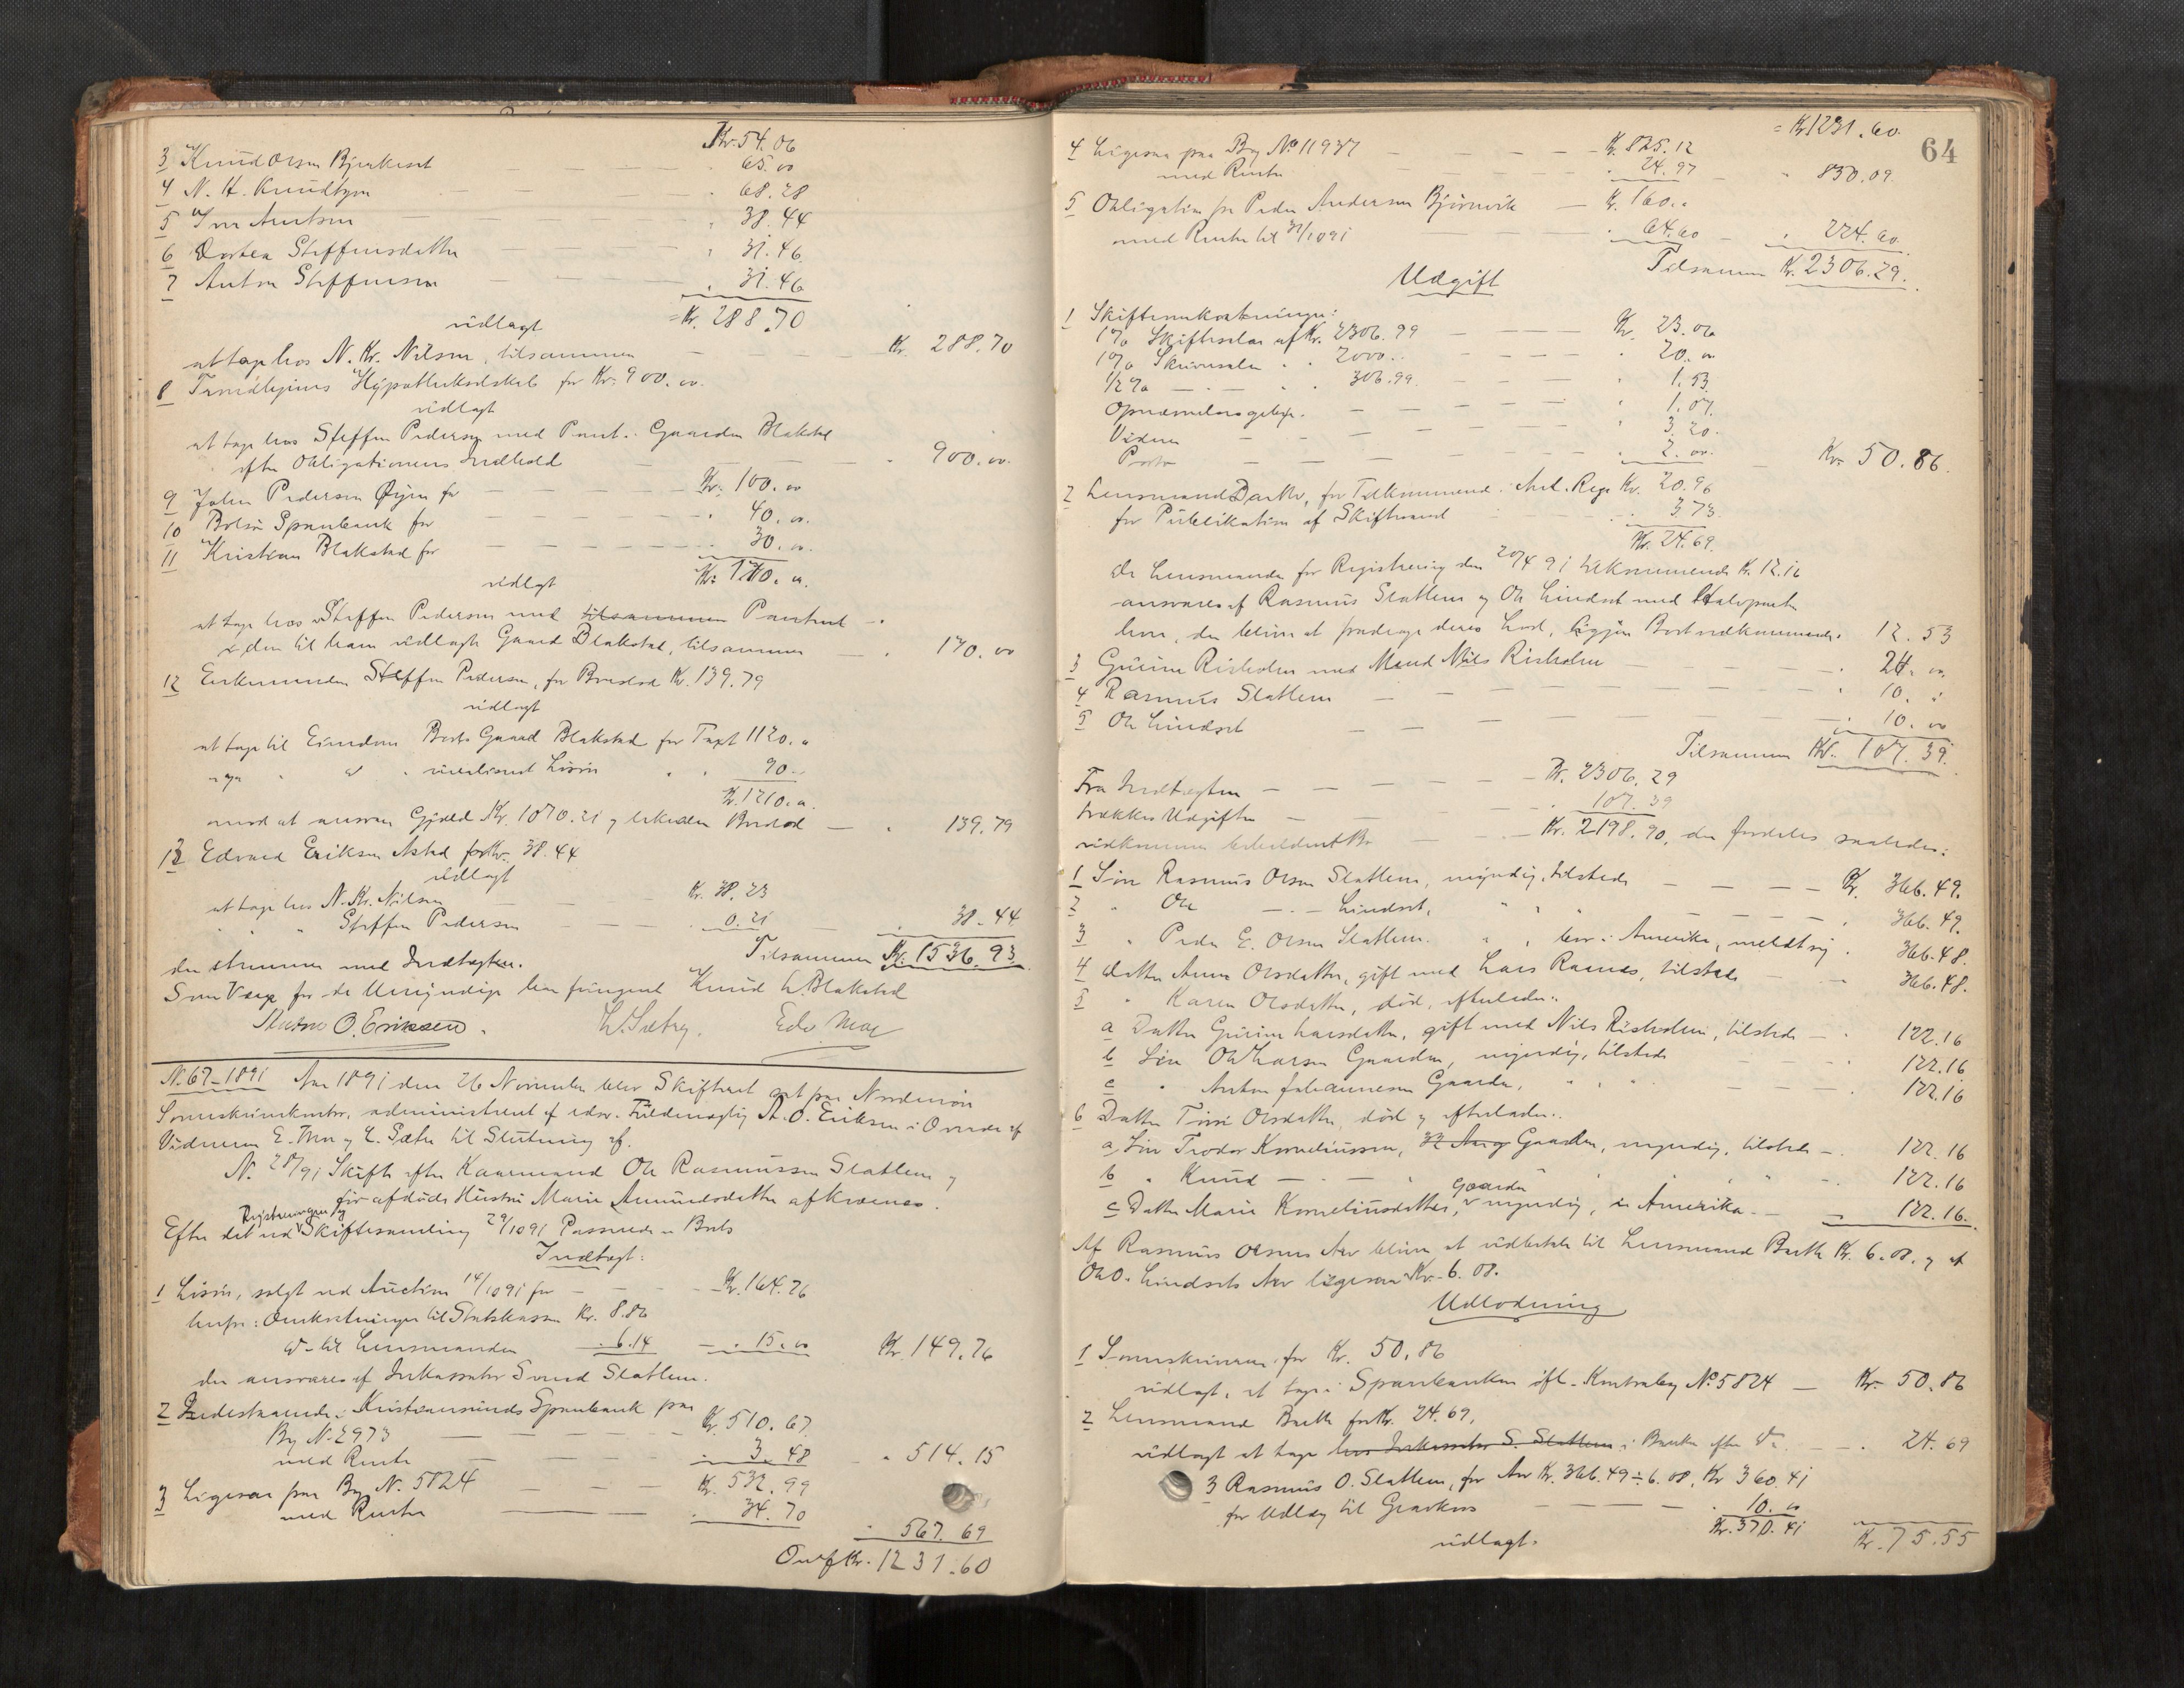 Kr. 54.06
3 Knud Olsen Bjerkeset — — — " 65.00
4 N. H. Knudtzon — — " 68.28
5 Iver Antsen — — " 38.44
6 Dortea Steffensdatter — — " 31.46
7 Anton Steffensen — — " 31.46
= Kr. 288.70
udlagt
at tage hos N. Kr. Nilsen, tilsammen — Kr. 288.70
8 Trondhjems Hypothekselskab for Kr. 900.00
udlagt
at tage hos Steffen Pedersen med Pant i Gaarden Blakstad
efter Obligationens Indhold — — " 900.00
9 John Pedersen Øyen for — — Kr. 100.00
10 Bolsø Sparebank for — — " 40.00
11 Kristian Blakstad for — — " 30.00
udlagt Kr. 170.00
at tage hos Steffen Pedersen med tilsammen Panteret
i den til ham udlagte Gaard Blakstad, tilsammen — " 170.00
12 Enkemanden Steffen Pedersen, for Broslod Kr. 139.79
udlagt
at tage til Eiendom Boets Gaard Blakstad for Taxt 1120.00
" " do " Løsøre " " 90.00
Kr. 1210.00
mod at ansvare Gjæld Kr. 1070.21 og beholder Broslod — " 139.79
13 Edvard Eriksen Astad for Kr. 38.44
udlagt
at tage hos N. Kr. Nilsen — — Kr. 38.23
" " " Steffen Pedersen — — " 0.21 — " 38.44
Tilsammen Kr. 1536.93
der stemmer med Indtægten.
Som Værge for de Umyndige har fungeret Knud L. Blakstad
O. Eriksen. L. Sæter. Edv. Moe
N. 67-1891 Aar 1891 den 26 November blev Skifteret sat paa Nordmøre
Sorenskriverkontor, administreret af edsv. Fuldmægtig A. O. Eriksen i Overvær af
Vidnerne E. Moe og L. Sæter til Slutning af.
N. 28/91 Skifte efter Kaarmand Ole Rasmussen Slatlem og
før afdøde Hustru Marie Amundsdatter af Kvernes.
Efter det ved Registreringen og Skiftesamling 29/10 91 Passerede er Boets
Indtægt:
1 Løsøre, solgt ved Auction 14/10 91 for — — Kr. 164.76
herfra: Omkostninger til Statskassen Kr. 8.86
do til Lensmanden " 6.14 — " 15.00 Kr. 149.76
der ansvares af Inkassator Svend Slatlem.
2 Indestaaende i Kristianssunds Sparebank paa
Bog N. 2973 — — Kr. 510.67
med Renter — — " 3.48 — " 514.15
3 Ligesaa paa Bog N. 5824 — — Kr. 532.99
med Renter — — " 34.70
" 567.69
Overf. Kr. 1231.60
64
= Kr. 1231.60
4 Ligesaa paa Bog No 11937 — — — Kr. 825.12
med Renter — — " 24.97 — " 850.09
5 Obligation fra Peder Andersen Bjørnvik — Kr. 160.00
med Renter til 31/10 91 — — " 64.60 — " 224.60
Tilsammen Kr. 2306.29
Udgift
1 Skifteomkostninger:
1% Skifteskat af Kr. 2306.99 — — Kr. 23.06
1% Skriversalær " " 2000.00 — — " 20.00
1/2% — " " 306.99 — — " 1.53
Opnævnelsesgebyr — — " 1.07
Vidner — — " 3.20
Porto — — " 2.00 Kr. 50.86
2 Lensmand Barth, for Tilkommende i Anl. Regn. Kr. 20.96
for Publikation af Skifteræt — " 3.73
Kr. 24.69
De Lensmanden for Registrering den 20/4 91 tilkommende Kr. 12.16
ansvares af Rasmus Slatlem og Ole Lindset med Halvparten
hver, der bliver at fradrage deres Lod, Boet vedkommende " 12.53
3 Guruine Risholm med Mand Nils Risholm — — " 24.00
4 Rasmus Slatlem — — " 10.00
5 Ole Lindset — — " 10.00
Tilsammen Kr. 107.39
Fra Indtægten — — — Kr. 2306.29
trækkes Udgiften — — " 107.39
udkommer Beholdning — — Kr. 2198.90, der fordeles saaledes:
1 Søn Rasmus Olsen Slatlem, myndig, tilstede — — — Kr. 366.49
2 " Ole — " — Lindset, " " — — — " 366.49
3 " Peder E. Olsen Slatlem " " bor i Amerika, meldt sig " 366.48
4 Datter Anne Olsdatter, gift med Lars Ramnes, tilstede — " 366.48
5 " Karen Olsdatter, død, efterlader:
a Datter Guruine Larsdatter, gift med Nils Risholm, tilstede — " 122.16
b Søn Ole Larsen Gaarden, myndig, tilstede — " 122.16
c " Anton Johannesen Gaarden, " " — — " 122.16
6 Datter Olsdatter død og efterlader:
a Søn Trodor Korneliussen, 32 Aar Gaarden, myndig, tilstede — " 122.16
b " Knud — " — " " — " 122.16
c Datter Marie Korneliusdatter, Gaarden myndig, i Amerika — " 122.16
Af Rasmus Olsens Arv bliver at udbetale til Lensmand Barth Kr. 6.08, og af
Ole O. Lindsets Arv ligesaa Kr. 6.08.
Udlodning
1 Sorenskriveren for Kr. 50.86
udlagt, at tage i Sparebanken ifl. Kontrabog No 5824 — Kr. 50.86
2 Lensmand Barth for Kr. 24.69,
udlagt at tage hos Inkassator S. Slatlem i Banken efter do — " 24.69
3 Rasmus O. Slatlem, for Arv Kr. 366.49 ÷ 6.08, Kr. 360.41
for Udlæg til Gravkors — — " 10.00
udlagt. Kr. 370.41 Kr. 75.55